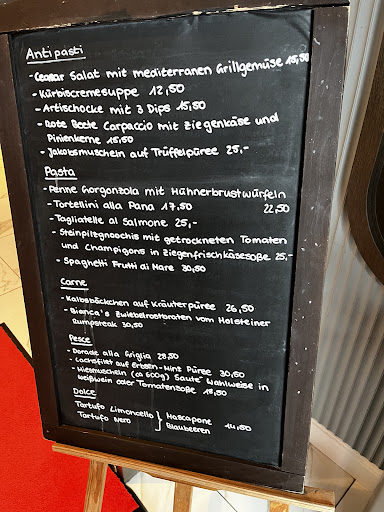 Antipasti
- Ceasar Salat mit mediterranen Grillgemüse 15,50
- Kürbiscremesuppe 12,50
- Artischocke mit 3 Dips 15,50
- Rote Beete Carpaccio mit Ziegenkäse und
Pinienkerne 15,50
- Jakobsmuscheln auf Trüffelpüree 25,-
Pasta
- Penne Gorgonzola mit Hühnerbrustwürfeln
22,50
- Tortellini alla Pana 17,50
- Tagliatelle al Salmone 25,-
- Steinpilzgnoochis mit getrockneten Tomaten
und Champigons in Ziegenfrischkäsesoße 25,-
- Spaghetti Frutti di Mare 30,50
Carne
- Kalbsbäckchen auf Kräuterpüree 26,50
- Bianca's Zwiebelrostbraten vom Holsteiner
Rumpsteak 30,50
Pesce
- Dorade alla Griglia 28,50
- Lachsfilet auf Erbsen-Mint Püree 30,50
- Miesmuscheln (ca 600g) Sauté Wahlweise in
Weißwein oder Tomatensoße 18,50
Dolce
Tartufo Limoncello } Mascapone
Tartufo Nero } Blaubeeren 14,50